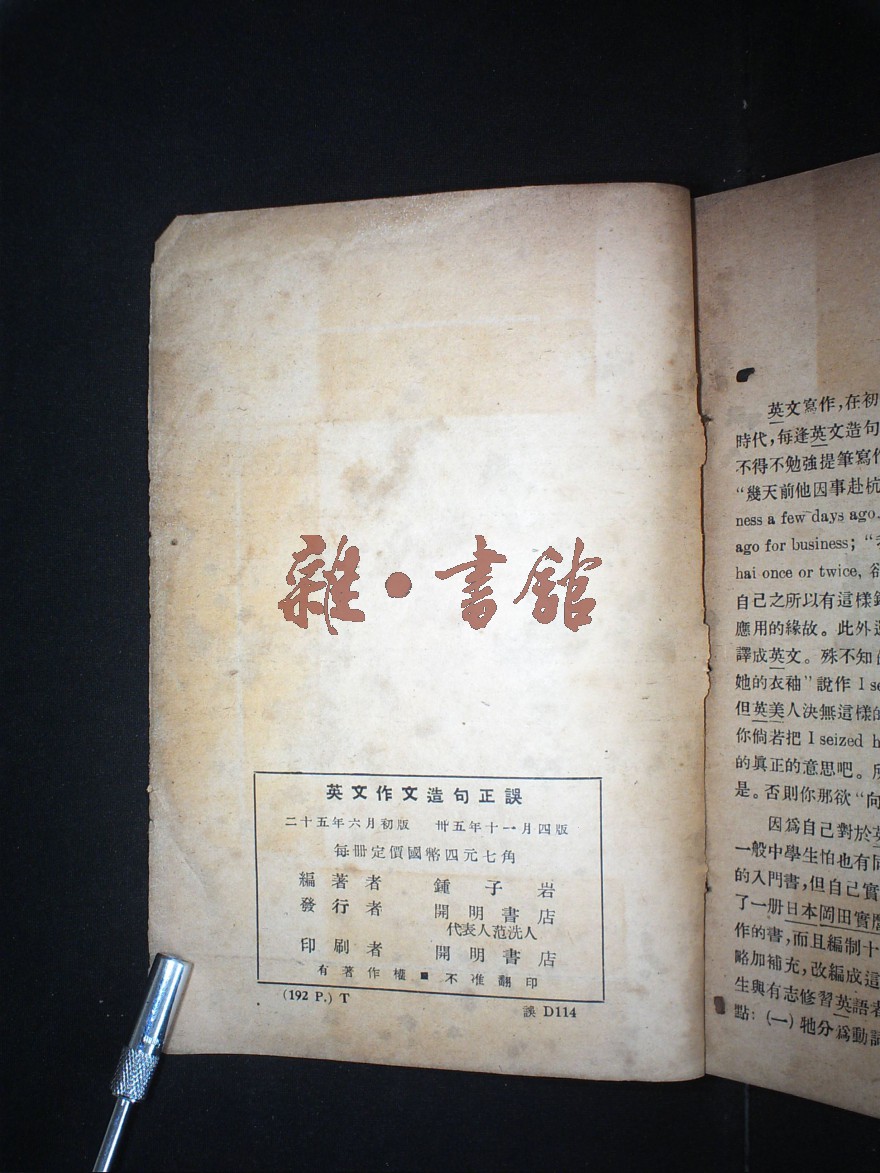 雜•書館
英文作文造句正誤
二十五年六月初版 卅五年十一月四版
每冊定價國幣四元七角
編著者 鍾子岩
發行者 開明書店
代表人范洗人
印刷者 開明書店
有著作權■不准翻印
(192 P.) T
誤 D114
英文寫作,在初
時代,每逢英文造句
不得不勉強提筆寫作
“幾天前他因事赴杭
ness a few days ago.
ago for business; “
hai once or twice, 
自己之所以有這樣
應用的緣故。此外
譯成英文。殊不知
她的衣袖”說作 I se
但英美人決無這樣的
你倘若把 I seized h
的眞正的意思吧。所
是。否則你那欲“向
因爲自己對於英
一般中學生怕也有同
的入門書,但自己實
了一册日本岡田實麿
作的書,而且編制十
略加補充,改編成這
生與有志修習英語者
點: (一) 牠分爲動詞